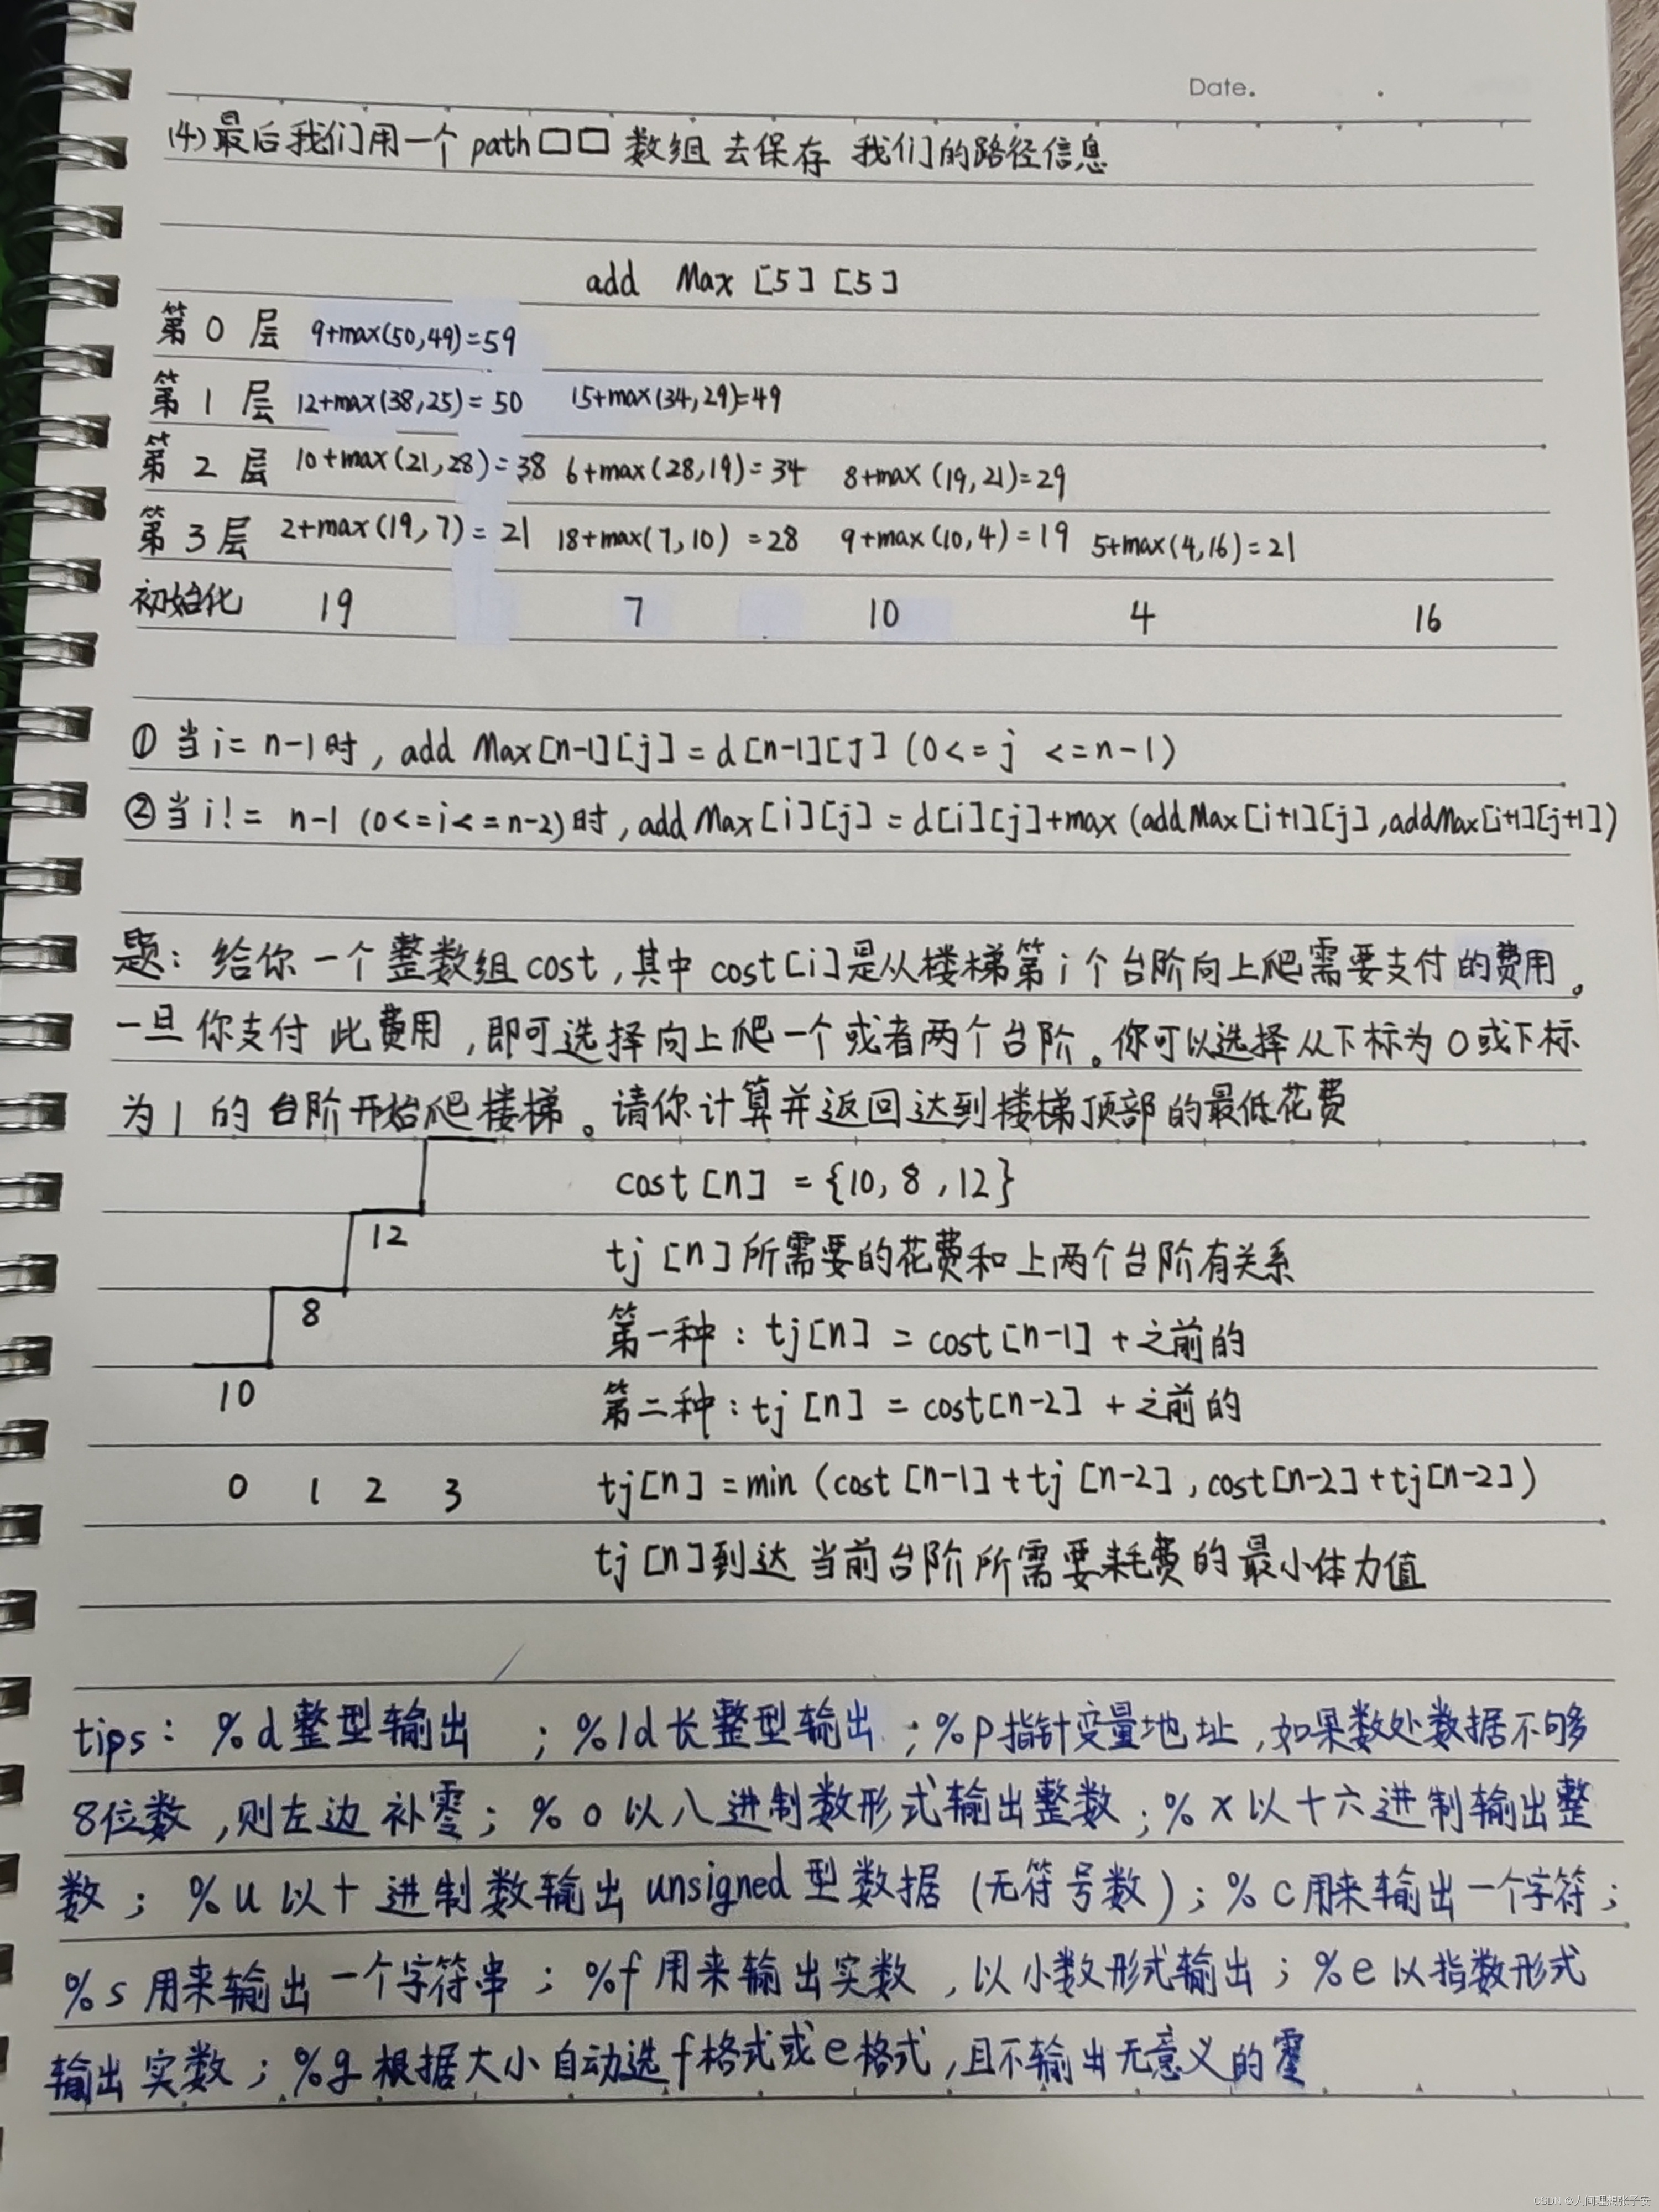 Date.
(4) 最后我们用一个 path□□ 数组 去保存 我们的路径信息
add Max [5] [5]
第 0 层 9+max(50,49)=59
第 1 层 12+max(38,25)= 50 15+max(34,29)=49
第 2 层 10+max(21,28)=38 6+max(28,19)=34 8+max (19,21)=29
第 3 层 2+max(19,7)= 21 18+max(7,10) =28 9+max(10,4)=19 5+max(4,16)=21
初始化 19 7 10 4 16
① 当 i= n-1 时, add Max[n-1][j]=d[n-1][J] (0<=j <=n-1)
② 当 i != n-1 (0<=i<=n-2)时,add Max[i][j]=d[i][j]+max (addMax[i+1][j],addMax[i+1][j+1])
题: 给你 一个 整数组 cost,其中 cost[i]是从楼梯第 i 个台阶向上爬需要支付的费用。
一旦 你支付 此费用,即可选择向上爬一个或者两个台阶。你可以选择从下标为 0 或下标
为 1 的 台阶开始爬楼梯。请你计算并返回达到楼梯顶部的最低花费
cost[n] ={10, 8 ,12}
12
tj [n]所需要的花费和上两个台阶有关系
8
第一种: tj[n] = cost[n-1] +之前的
10
第二种: tj [n] = cost[n-2] +之前的
0 1 2 3 tj[n]=min (cost [n-1]+tj [n-2],cost[n-2]+tj[n-2])
tj [n]到达 当前台阶所需要耗费的最小体力值
tips: %d 整型输出 ; %ld 长整型输出 ; %p 指针变量地址 ,如果数处数据不够
8位数 ,则左边 补零; % o 以八进制数形式输出整数 ; % x 以十六进制输出整
数 ; %u 以十进制数输出 unsigned 型数据 (无符号数) ; % c 用来输出一个字符 ;
%s 用来输出 一个字符串 ; %f 用来输出实数 ,以小数形式输出 ; %e 以指数形式
输出 实数 ; %g 根据大小自动选f格式或e格式,且不输出无意义的零
CSDN @人间理想张子安